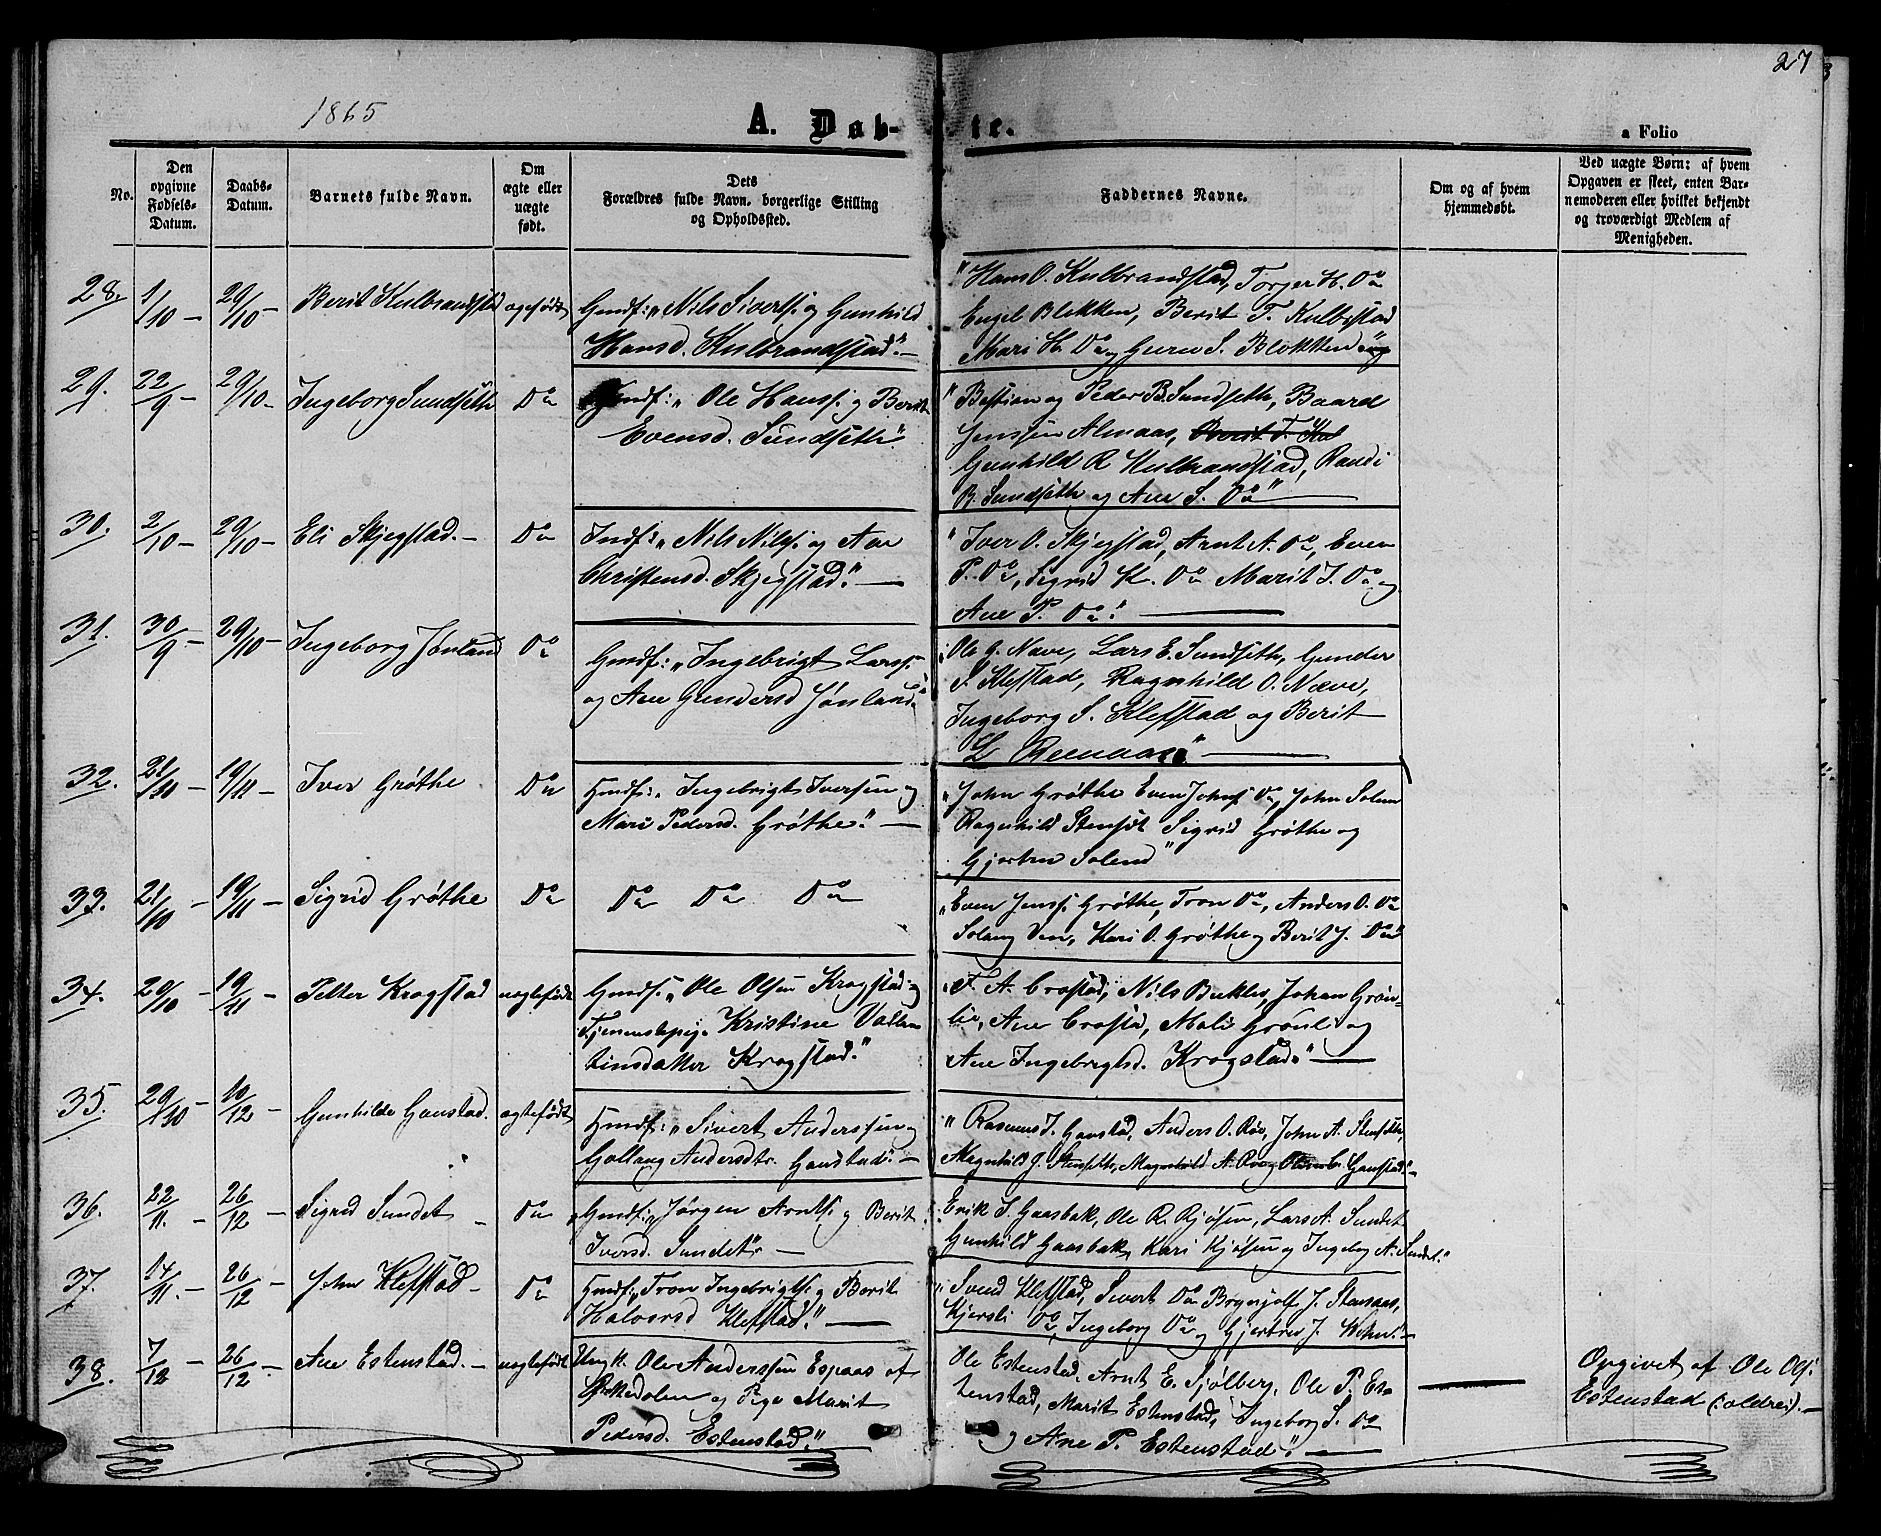 27
1865
A. Døb-
te.
a Folio
No.
Den
opgivne
Fødsels-
Datum.
Daabs-
Datum.
Barnets fulde Navn.
Om
ægte eller
uægte
født.
Dets
Forældres fulde Navn, borgerlige Stilling
og Opholdssted.
Faddernes Navne.
Om og af hvem
hjemmedøbt.
Ved uægte Børn: af hvem
Opgaven er skeet, enten Bar-
nemoderen eller hvilket bekjendt
og troværdigt Medlem af
Menigheden.
28. 1/10 - 29/10 - Berit Kulbrandstad ægtefødt
Gmdf: "Nils Sivertss. og Gunhild
Hansd. Kulbrandstad." -
"Hans O. Kulbrandstad, Torger H. Do
Engel Blekken, Berit T. Kulbrstad
Mari H. Do og Guru S. Blekken"
29. 22/9 - 29/10 - Ingeborg Sundseth Do
Gmdf: "Ole Hanss. og Berit
Evensd. Sundseth"
"Bastian og Peder B. Sundseth, Baard
Jenssen Almaas,
Gunhild R Kulbrandstad, Randi
B. Sundseth og Ane S. Do"
30. 2/10 - 29/10 - Eli Skjegstad. - Do
Indf: "Nils Nilss. og Ane
Christensd. Skjegstad." -
"Iver O. Skjegstad, Arnt A. Do, Even
P. Do, Sigrid K. Do Marit I. Do og
Ane P. Do." -
31. 30/9 - 29/10 - Ingeborg Jønland Do
Gmdf: "Ingebrigt Larss.
og Ane Gundersd Jønland."
"Ole G. Næve, Lars E. Sundseth, Gunder
S. Klefstad, Ragnhild O. Næve,
Ingeborg S. Klefstad og Berit
L Remaas" -
32. 21/10 - 19/11 - Iver Grøthe Do
Gmdf: "Ingebrigt Iversen og
Mari Pedersd. Grøthe." -
"John Grøthe Even Johns Do, John Solem
Ragnhild Stensdt Sigrid Grøthe og
Gjertru Solem"
33. 21/10 - 19/11 - Sigrid Grøthe Do
Do Do Do
"Even Jenss. Grøthe, Tron Do, Anders O. Do
Solaug Ven, Kari O. Grøthe og Berit J. Do"
34. 20/10 - 19/11 - Petter Krogstad uægtefødt
Gmdf: "Ole Olsen Krogstad og
Tjenestepige Kristine Valen
tinsdatter Krogstad."
"F. A. Crostad, Nils Bukler, Johan Grøn-
lie, Ane Crostad, Mali Grønli og
Ane Ingebrigtsd. Krogstad." -
35. 29/10 - 10/12 - Gunhilde Ganstad. ægtefødt
Gmdf: "Sivert Anderssen og
Gollaug Andersdtr. Ganstad." -
"Rasmus J. Ganstad, Anders O. Røe, John A. Stenseth,
Magnhild J. Stenseth, Magnhild A. Røe og Ganstad." -
36. 22/11. - 26/12 - Sigrid Sundet - Do
"Gmdf: "Jørgen Arntss. og Berit
Iversd. Sundet" -
"Erik S. Gaasbak, Ole R. Kjøsen, Lars A. Sundet
Gunhild Gaasbak, Kari Kjøsen og Ingebog A. Sundet."
37. 14/11. - 26/12 - John Klefstad - Do
Gmdf: "Tron Ingebrigtss. og Berit
Halvorsd Klefstad." -
"Svend Klefstad, Sivert Do Brynjolf J. Stensaas,
Kjersti Do, Ingeborg Do og Gjertru J. Wehn." -
38. 7/12 - 26/12 - Ane Estenstad. - uægtefødt
Ungk. Ole Anderssen Espaas af
Ørkedalen og Pige Marit
Pedersd. Estenstad."
Ole Estenstad, Arnt E. Sjølberg, Ole P. Es-
tenstad, Marit Estenstad, Ingeborg S. Do
og Ane P. Estenstad." -
Opgivet af Ole Ols.
Estenstad (:oldrei). -